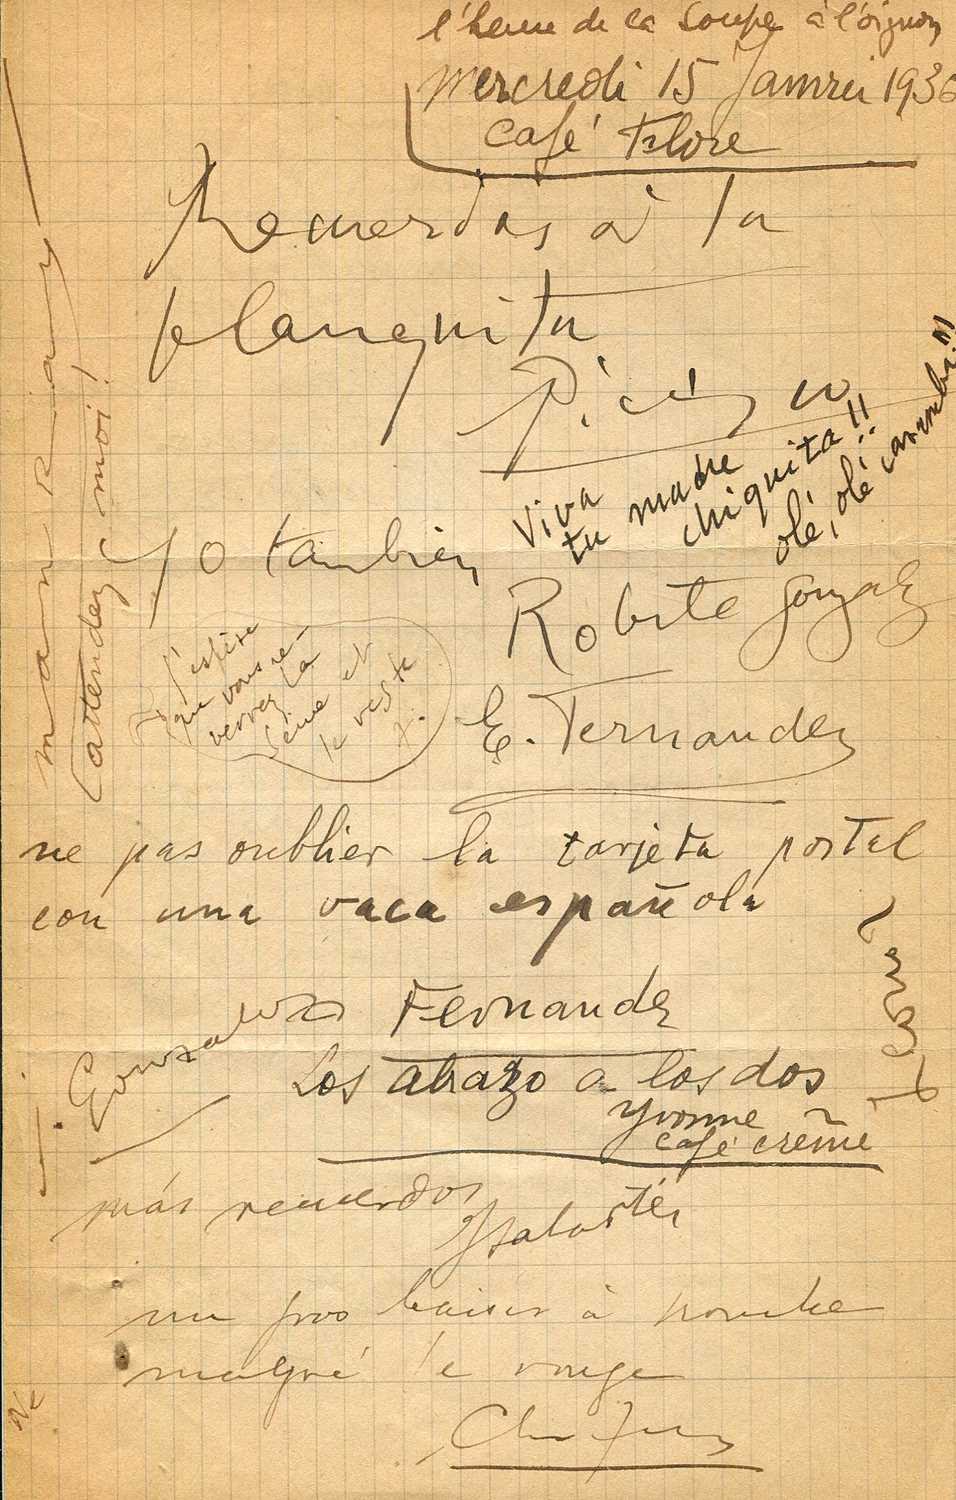 l'heure de la soupe à l'oignon
Mercredi 15 Janvier 1936
café Flore
Recuerdos à la
planquita
Picasso
Viva
tu madre
chiquita!!
olé, olé caramba!!!
Yo tambien
Roberte Gonzalez
man Ray
(attendez moi!
J'espère
que vous re-
verrez la
Seine et
le reste
E. Fernandez
ne pas oublier la tarjeta postal
con una vaca española
Fernandez
Gonzalez
Los abrazo a los dos
Yvonne
café crème
más recuerdos
Sabartés
un gros baiser à
malgré le rouge